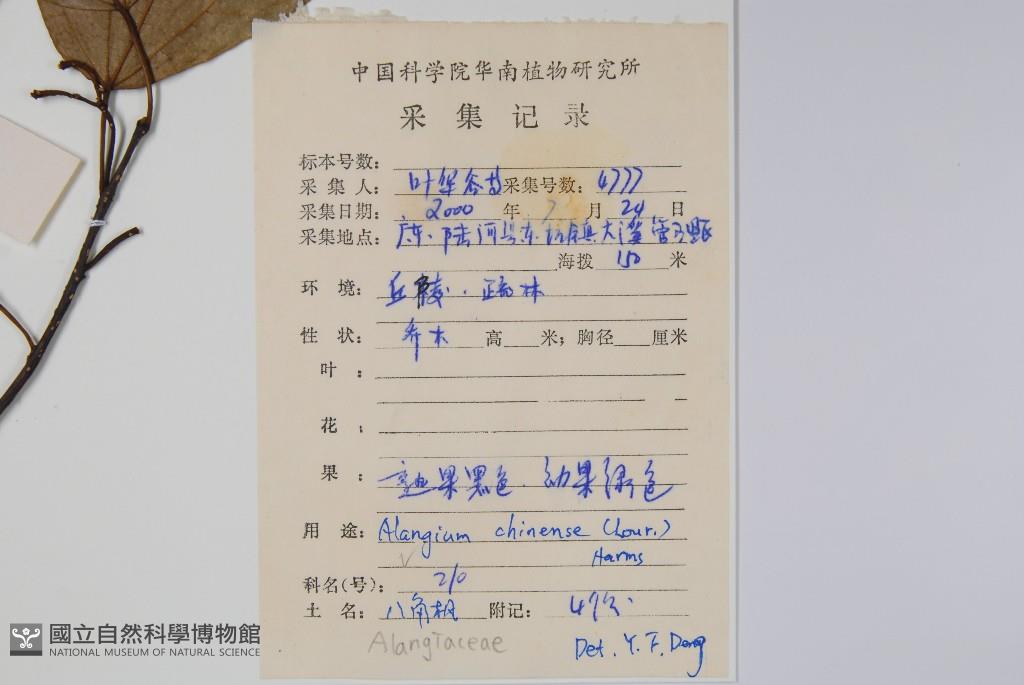 中国科学院华南植物研究所
采集记录
标本号数:
采集人: 叶华谷等 采集号数: 4777
采集日期: 2000 年 7 月 24 日
采集地点: 广东、陆河县东坑镇大溪
海拨 150 米
环境: 丘陵. 疏林
性状: 乔木 高 米; 胸径 厘米
叶:
花:
果: 熟果黑色. 幼果绿色
用途: Alangium chinense (Lour.)
Harms
科名(号): 210
土名: 八角枫 附记: 4份.
Alangiaceae
Det. Y. F. Deng
國立自然科學博物館
NATIONAL MUSEUM OF NATURAL SCIENCE